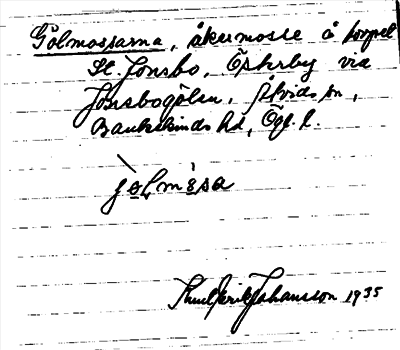 Gölmossarna, åkermosse å torpet
St. Jonsbo, Öskrby via
Jonsbogölen, Åtvids sn,
Bankekinds hd, Ögl. l.
jø̀lmòsa
Knut Erik Johansson 1935